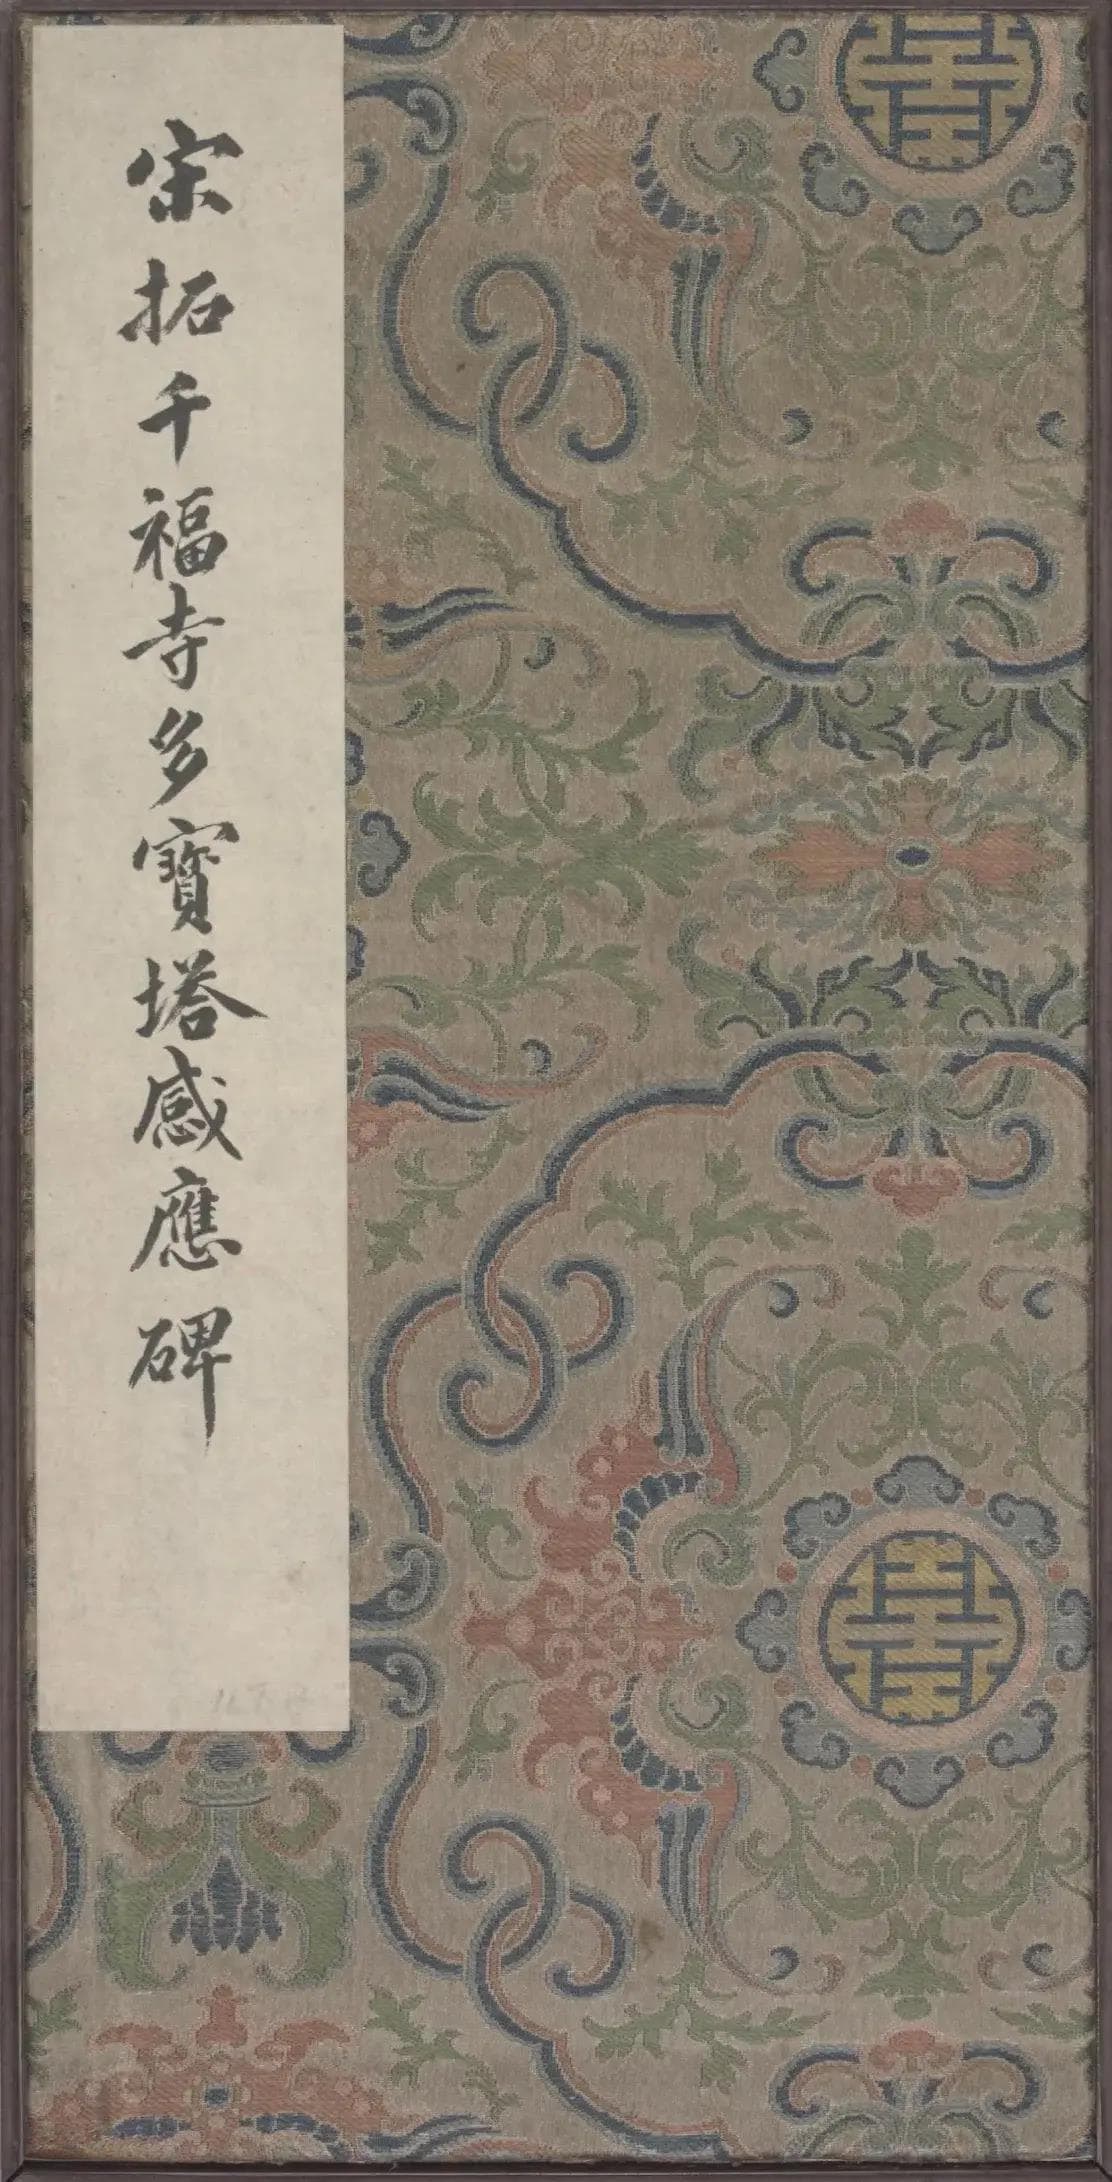 宋拓千福寺多寶塔感應碑